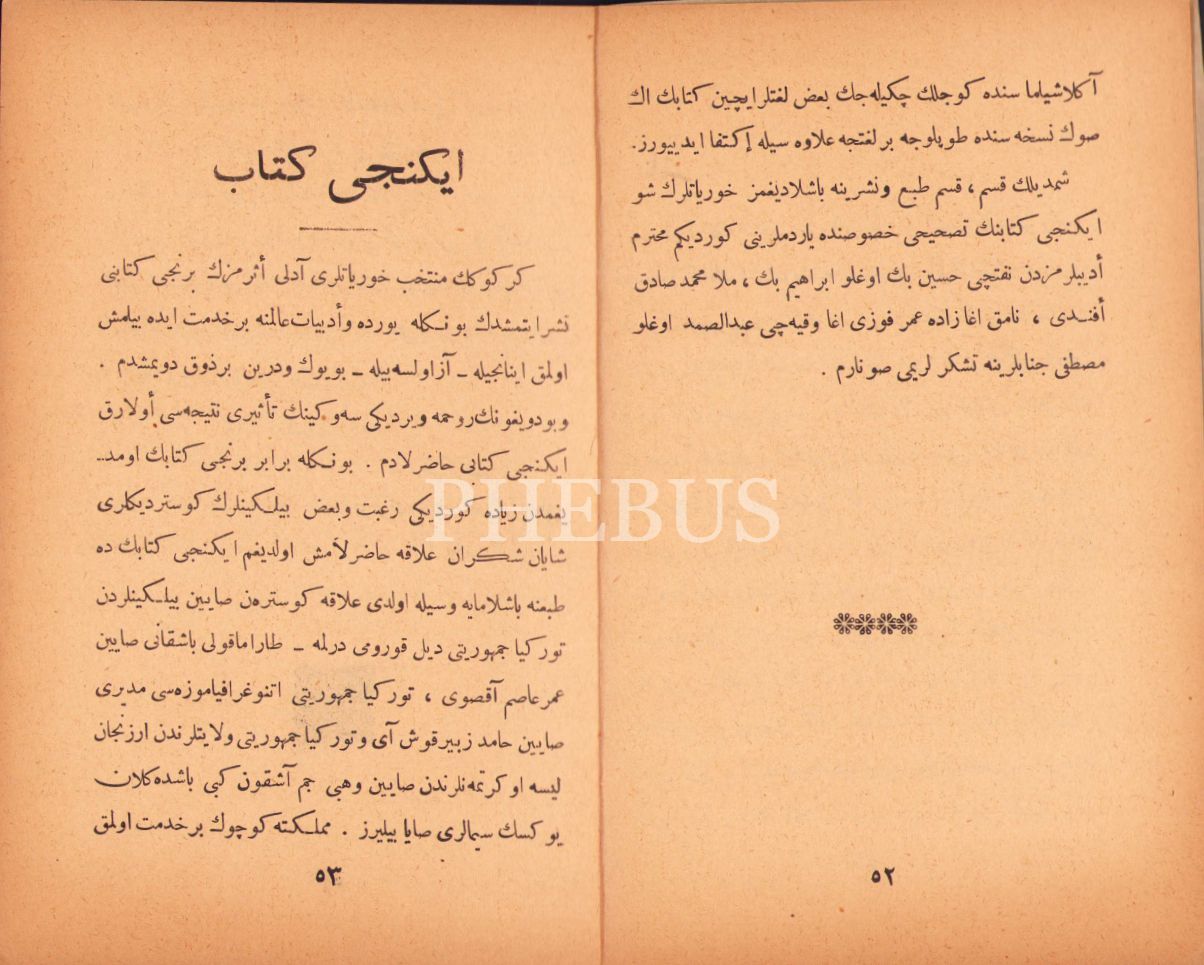 آكلاشيلما سنده كوجلك چكيله‌جك بعض لغتلر ايچين كتابك اك
صوك نسخه سنده طوپلوجه بر لغتجه علاوه سيله إكتفا ايدييورز.
شمديلك قسم ، قسم طبع ونشرينه باشلاديغمز خورياتلرك شو
ايكنجى كتابنك تصحيحى خصوصنده ياردملرينى كورديكم محترم
أديبلر مزدن نفتچى حسين بك اوغلو ابراهيم بك ، ملا محمد صادق
أفندى ، نامق اغا زاده عمر فوزى اغا وقيه‌چى عبدالصمد اوغلو
مصطفى جنابلرينه تشكر لريمى صونارم .
٥٢
ايكنجى كتاب
كركوكك منتخب خورياتلرى آدلى أثر مزك برنجى كتابنى
نشر ايتمشدك بونكله يورده وأدبيات عالمنه بر خدمت ايده بيلمش
اولمق اينانجيله ــ آز اولسه بيله ــ بويوك ودرين بر ذوق دويمشدم .
وبو دويغونك روحمه ويرديكى سه‌وكينك تأثيرى نتيجه‌سى أولارق
ايكنجى كتابى حاضرلادم . بونكله برابر برنجى كتابك اومد‌ــ
يغمدن زياده كورديكى رغبت وبعض بيلكينلرك كوسترديكلرى
شايان شكران علاقه حاضرلامش اولديغم ايكنجى كتابك ده
طبعنه باشلامايه وسيله اولدى علاقه كوستره‌ن صايين بيلكينلردن
توركيا جمهوريتى ديل قورومى درلمه ــ طاراما قولى باشقانى صايين
عمر عاصم آقصوى ، توركيا جمهوريتى اتنوغرافيا موزه‌سى مديرى
صايين حامد زبير قوش آى وتوركيا جمهوريتى ولايتلرندن ارزنجان
ليسه اوكرتمه‌نلرندن صايين وهبى جم آشقون كبى باشده كلان
يوكسك سيمالرى صايا بيليرز . مملكته كوچوك بر خدمت اولمق
٥٣
PHEBUS